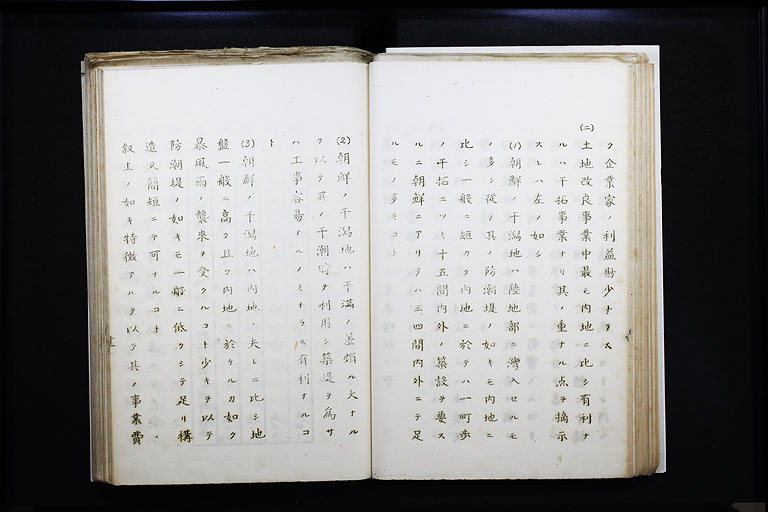 ク企業家ノ利益尠少ナラス
(二)土地改良事業中最モ内地ニ比シ有利ナ
ルハ干拓事業ナリ其ノ重ナル点ヲ摘示
スレハ左ノ如シ
(1)朝鮮ノ干潟地ハ陸地部ニ湾入セルモ
ノ多シ従テ其ノ防潮堤ノ如キモ内地ニ
比シ一般ニ短カク内地ニ於テハ一町歩
ノ干拓ニツキ十五間内外ノ築設ヲ要ス
ルニ朝鮮ニアリテハ三、四間内外ニテ足
ルモノ多キコト
(2)朝鮮ノ干潟地ハ干満ノ差頗ル大ナル
ヲ以テ其ノ干潮時ヲ利用シ築堤ヲ為サ
ハ工事容易ナルノミナラス有利ナルコ
ト
(3)朝鮮ノ干潟地ハ内地ノ夫レニ比シ地
盤一般ニ高ク且ツ内地ニ於ケルカ如ク
暴風雨ノ襲来ヲ受クルコト少キヲ以テ
防潮堤ノ如キモ一般ニ低クシテ足リ構
造又簡短ニテ可ナルコト、
叙上ノ如キ特徴アルヲ以テ其ノ事業費